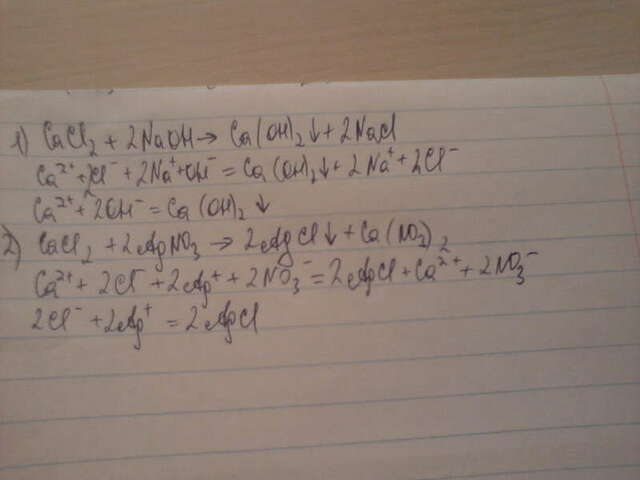 1) CaCl₂ + 2NaOH → Ca(OH)₂↓ + 2NaCl
Ca²⁺ + 2Cl⁻ + 2Na⁺ + OH⁻ = Ca(OH)₂↓ + 2Na⁺ + 2Cl⁻
Ca²⁺ + 2OH⁻ = Ca(OH)₂↓
2) CaCl₂ + 2AgNO₃ → 2AgCl↓ + Ca(NO₃)₂
Ca²⁺ + 2Cl⁻ + 2Ag⁺ + 2NO₃⁻ = 2AgCl + Ca²⁺ + 2NO₃⁻
2Cl⁻ + 2Ag⁺ = 2AgCl